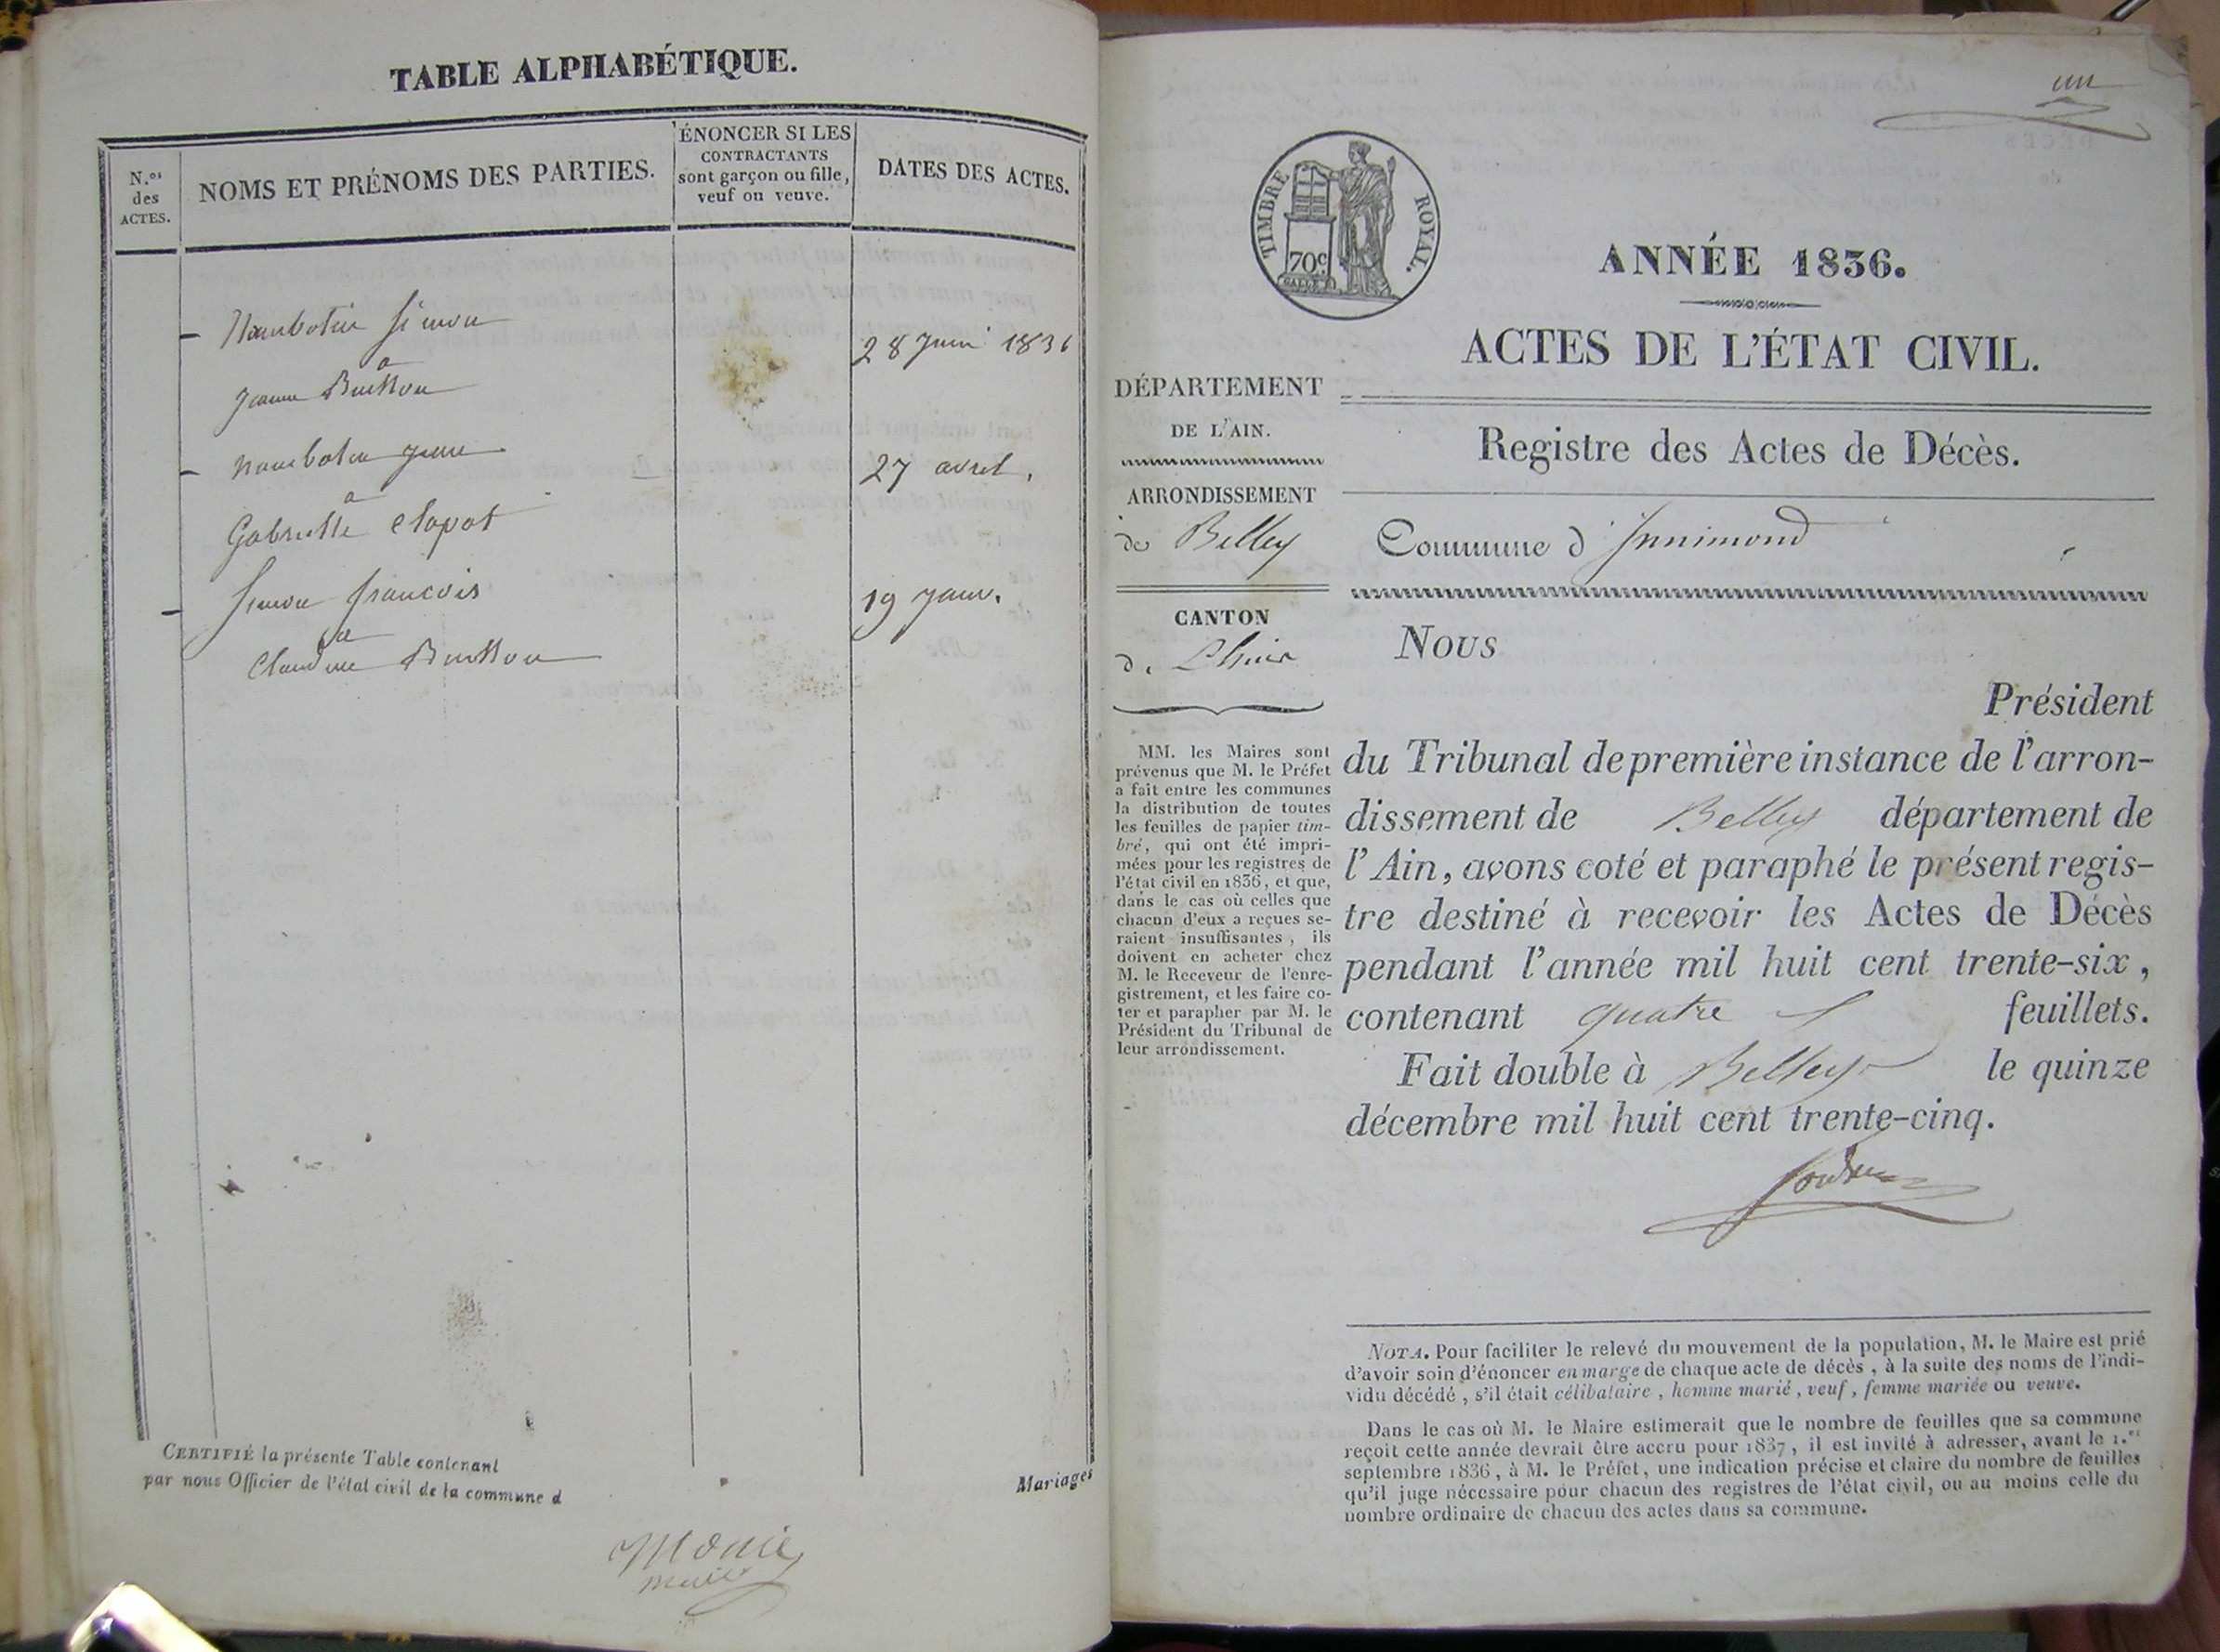 TABLE ALPHABÉTIQUE.
N.os des ACTES.
NOMS ET PRÉNOMS DES PARTIES.
ÉNONCER SI LES
CONTRACTANTS
sont garçon ou fille,
veuf ou veuve.
DATES DES ACTES.
Simon
28 Juin 1836
à
Buisson
27 avril.
à
Gabrielle Clapot
Simon francois
19 janv.
à
Claudine Buisson
CERTIFIÉ la présente Table contenant
Mariages
par nous Officier de l'état civil de la commune d
maire
un
TIMBRE ROYAL.
70c
ANNÉE 1836.
ACTES DE L'ÉTAT CIVIL.
DÉPARTEMENT
DE L'AIN.
Registre des Actes de Décès.
ARRONDISSEMENT
de Belley
Commune d'Innimond
CANTON
de Lhuis
Nous
Président
du Tribunal de première instance de l'arron-
dissement de Belley département de
l'Ain, avons coté et paraphé le présent regis-
tre destiné à recevoir les Actes de Décès
pendant l'année mil huit cent trente-six,
contenant quatre feuillets.
Fait double à Belley le quinze
décembre mil huit cent trente-cinq.
MM. les Maires sont
prévenus que M. le Préfet
a fait entre les communes
la distribution de toutes
les feuilles de papier tim-
bré, qui ont été impri-
mées pour les registres de
l'état civil en 1836, et que,
dans le cas où celles que
chacun d'eux a reçues se-
raient insuffisantes, ils
doivent en acheter chez
M. le Receveur de l'enre-
gistrement, et les faire co-
ter et parapher par M. le
Président du Tribunal de
leur arrondissement.
NOTA. Pour faciliter le relevé du mouvement de la population, M. le Maire est prié
d'avoir soin d'énoncer en marge de chaque acte de décès, à la suite des noms de l'indi-
vidu décédé, s'il était célibataire, homme marié, veuf, femme mariée ou veuve.
Dans le cas où M. le Maire estimerait que le nombre de feuilles que sa commune
reçoit cette année devrait être accru pour 1837, il est invité à adresser, avant le 1.er
septembre 1836, à M. le Préfet, une indication précise et claire du nombre de feuilles
qu'il juge nécessaire pour chacun des registres de l'état civil, ou au moins celle du
nombre ordinaire de chacun des actes dans sa commune.